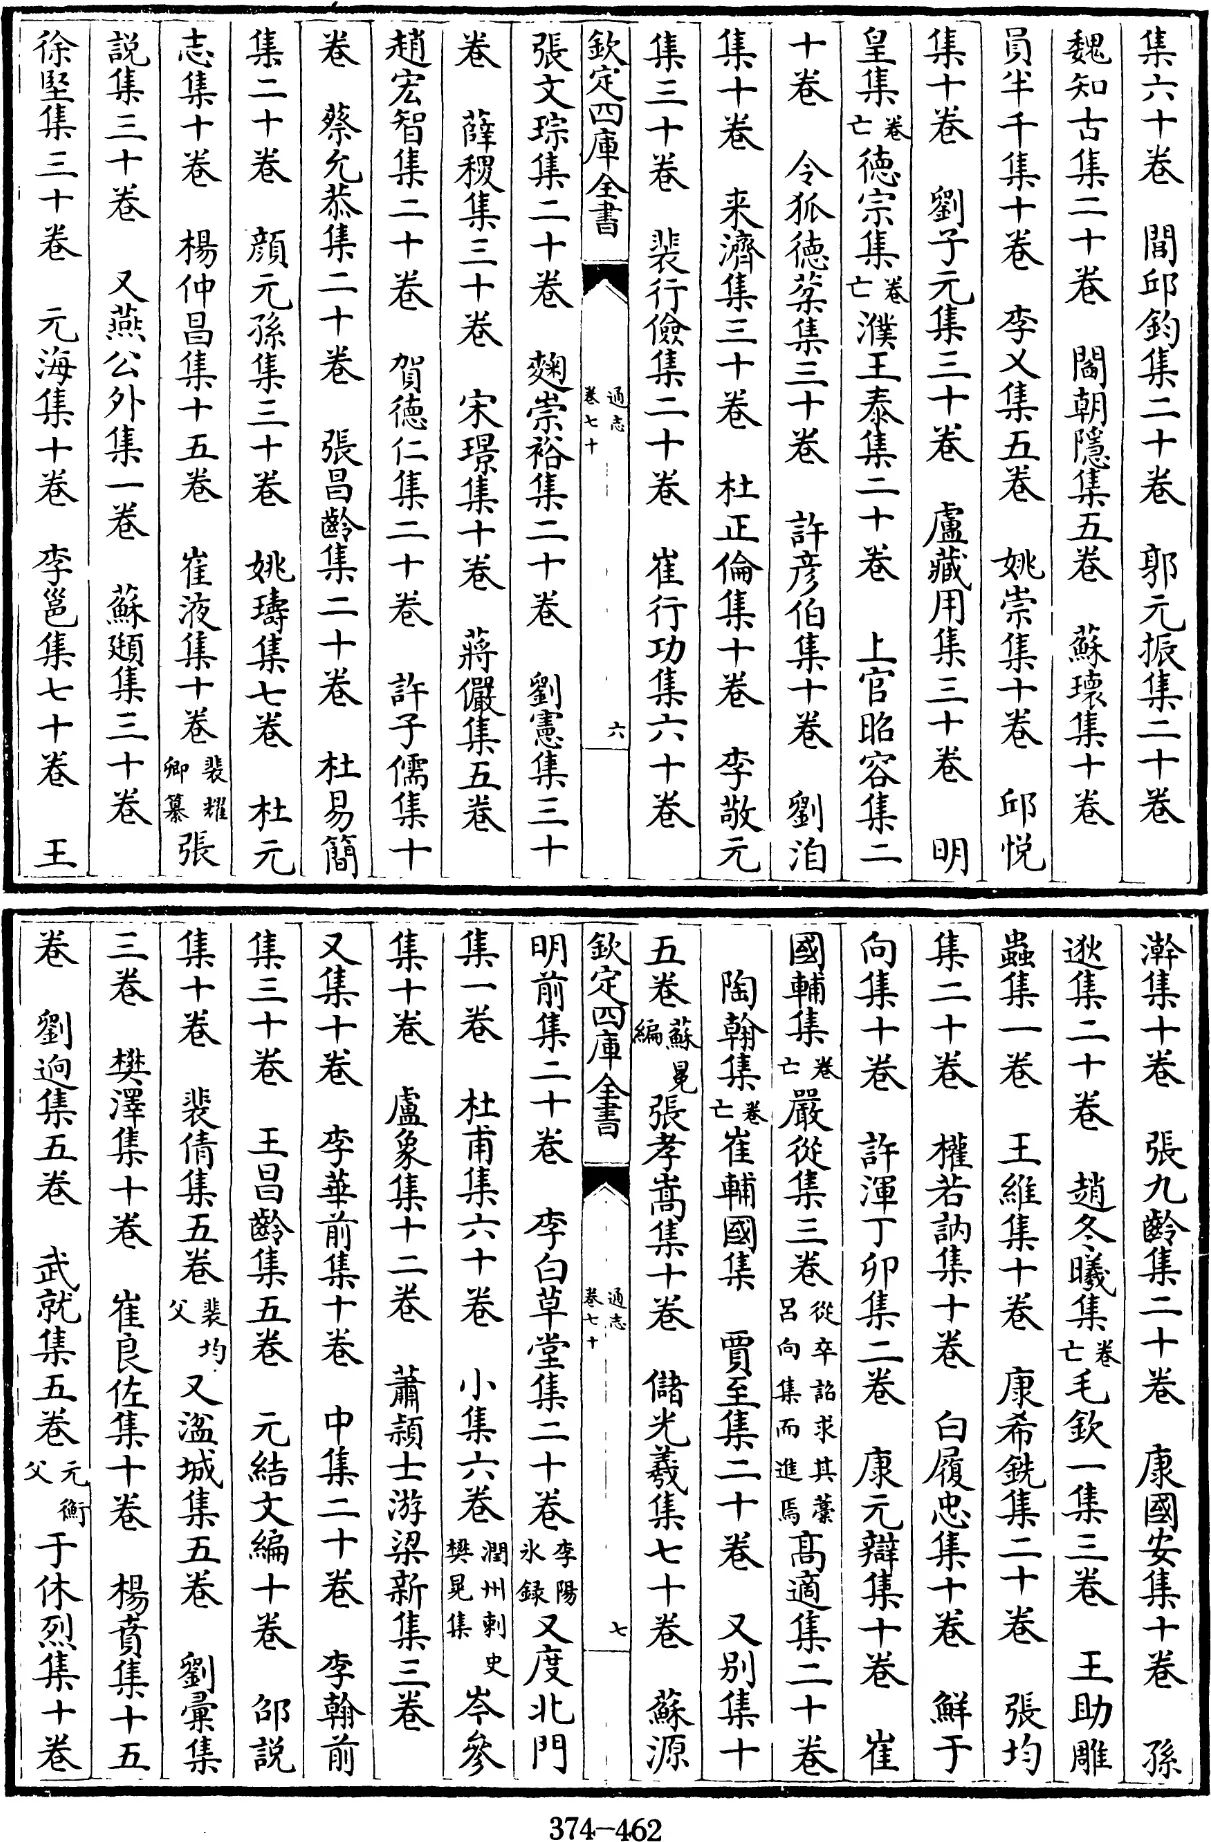 集六十卷　閭邱鈞集二十卷　郭元振集二十卷
魏知古集二十卷　閻朝隱集五卷　蘇瓌集十卷
員半千集十卷　李乂集五卷　姚崇集十卷　邱悦
集十卷　劉子元集三十卷　盧藏用集三十卷　明
皇集卷亡德宗集卷亡濮王泰集二十卷　上官昭容集二
十卷　令狐德棻集三十卷　許彦伯集十卷　劉洎
集十卷　来濟集三十卷　杜正倫集十卷　李敬元
集三十卷　裴行儉集二十卷　崔行功集六十卷
欽定四庫全書　通志卷七十　六
張文琮集二十卷　麴崇裕集二十卷　劉憲集三十
卷　薛稷集三十卷　宋璟集十卷　蔣儼集五卷
趙宏智集二十卷　賀德仁集二十卷　許子儒集十
卷　蔡允恭集二十卷　張昌齡集二十卷　杜易簡
集二十卷　顔元孫集三十卷　姚璹集七卷　杜元
志集十卷　楊仲昌集十五卷　崔液集十卷裴耀卿纂張
説集三十卷　又燕公外集一卷　蘇頲集三十卷
徐堅集三十卷　元海集十卷　李邕集七十卷　王
澣集十卷　張九齡集二十卷　康國安集十卷　孫
逖集二十卷　趙冬曦集卷亡毛欽一集三卷　王助雕
蟲集一卷　王維集十卷　康希銑集二十卷　張均
集二十卷　權若訥集十卷　白履忠集十卷　鮮于
向集十卷　許渾丁卯集二卷　康元辯集十卷　崔
國輔集卷亡嚴從集三卷從卒詔求其藁呂向集而進焉高適集二十卷
陶翰集卷亡崔輔國集　賈至集二十卷　又别集十
五卷蘇冕編張孝嵩集十卷　儲光羲集七十卷　蘇源
欽定四庫全書　通志卷七十　七
明前集二十卷　李白草堂集二十卷李陽氷録又度北門
集一卷　杜甫集六十卷　小集六卷潤州刺史樊晃集岑參
集十卷　盧象集十二卷　蕭頴士游梁新集三卷
又集十卷　李華前集十卷　中集二十卷　李翰前
集三十卷　王昌齡集五卷　元結文編十卷　邵説
集十卷　裴倩集五卷裴均父又湓城集五卷　劉彙集
三卷　樊澤集十卷　崔良佐集十卷　楊賁集十五
卷　劉迥集五卷　武就集五卷元衡父于休烈集十卷
374-462